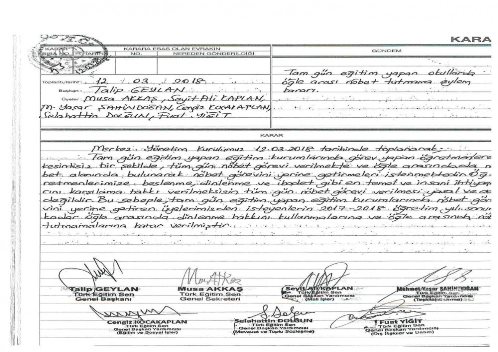 KARA
KARAR
KARARA ESAS OLAN EVRAKIN
NO.
NEREDEN GÖNDERİLDİĞİ
GÜNDEM
12 03 2018
Başkan: Talip GEYLAN
Üyeler: Musa AKKAŞ, Seyit Ali KAPLAN,
M. Yaşar ŞAHİNDOĞAN, Cengiz KOCAKAPLAN,
Selahattin DOLĞUN, Fuat YİĞİT
Tam gün eğitim yapan okullarda
öğle arası nöbet tutmama eylem
kararı.
KARAR
Merkez Yönetim Kurulumuz 12.03.2018 tarihinde toplanarak:
Tam gün eğitim yapan eğitim kurumlarında görev yapan öğretmenlere
kesintisiz bir şekilde, tüm gün nöbet görevi verilmekte ve öğle arasında da nö-
bet alanında bulunarak nöbet görevini yerine getirmeleri istenmektedir. Öğ-
retmenlerimize, beslenme, dinlenme ve ibadet gibi en temel ve insani ihtiyaç-
ını karşılama hakkı verilmeksizin tüm gün nöbet görevi verilmesi, yasal ve
değildir. Bu sebeple, tam gün eğitim yapan eğitim kurumlarında nöbet gör-
vini yerine getiren üyelerimizden isteyenlerin 2017-2018 öğretim yılı sonuna
kadar öğle arasında dinlenme hakkını kullanmalarına ve öğle arasında nö-
tutmamalarına karar verilmiştir.
Talip GEYLAN
Türk Eğitim Sen
Genel Başkanı
Musa AKKAŞ
Türk Eğitim Sen
Genel Sekreteri
Seyit Ali KAPLAN
Türk Eğitim Sen
Genel Başkan Yardımcısı
(Mali İşler)
Mehmet Yaşar ŞAHİNDOĞAN
Türk Eğitim Sen
Genel Başkan Yardımcısı
(Teşkilatlandırma)
Cengiz KOCAKAPLAN
Türk Eğitim Sen
Genel Başkan Yardımcısı
(Eğitim ve Sosyal İşler)
Selahattin DOLĞUN
Türk Eğitim Sen
Genel Başkan Yardımcısı
(Mevzuat ve Toplu Sözleşme)
Fuat YİĞİT
Türk Eğitim Sen
Genel Başkan Yardımcısı